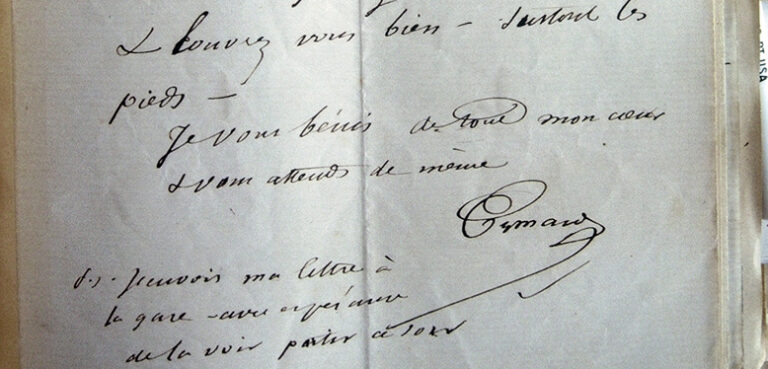 & couvrez vous bien – surtout les
pieds –
Je vous bénis de tout mon cœur
& vous attends de même
p.s. – J'envoie ma lettre à
la gare – avec espérance
de la voir partir ce soir
USA